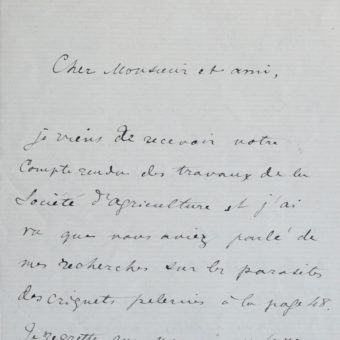 Cher Monsieur et ami,
je viens de recevoir notre
Compte rendu des travaux de la
Société d'agriculture et j'ai
vu que vous aviez parlé de
mes recherches sur les parasites
des criquets pelerins à la page 48.
Je regrette que